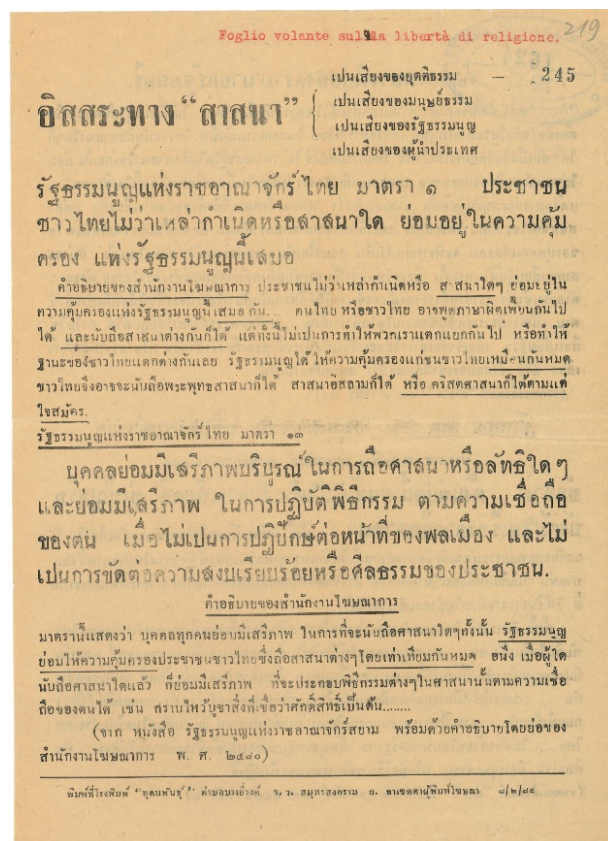 Foglio volante sulla libertà di religione.
219
เป็นเสียงของยุตติธรรม — 245
อิสสระทาง "สาสนา"
เป็นเสียงของมนุษย์ธรรม
เป็นเสียงของรัฐธรรมนูญ
เป็นเสียงของผู้นำประเทศ
รัฐธรรมนูญแห่งราชอาณาจักร์ไทย มาตรา ๑ ประชาชน
ชาวไทยไม่ว่าเหล่ากำเนิดหรือสาสนาใด ย่อมอยู่ในความคุ้ม
ครอง แห่งรัฐธรรมนูญนี้เสมอ
คำอธิบายของสำนักงานโฆษณาการ ประชาชนไม่ว่าเหล่ากำเนิดหรือ สาสนาใดๆ ย่อมอยู่ใน
ความคุ้มครองแห่งรัฐธรรมนูญนี้เสมอ กัน... คนไทย หรือชาวไทย อาจพูดภาษาผิดเพี้ยนกันไป
ได้ และนับถือสาสนาต่างกันก็ได้ แต่ทั้งนี้ไม่เป็นการทำให้พวกเราแตกแยกกันไป หรือทำให้
ฐานะของชาวไทยแตกต่างกันเลย รัฐธรรมนูญได้ให้ความคุ้มครองแก่ชนชาวไทยเหมือนกันหมด
ชาวไทยจึงอาจจะนับถือพระพุทธสาสนาก็ได้ สาสนาอิสลามก็ได้ หรือ คริสตศาสนาก็ได้ตามแต่
ใจสมัคร.
รัฐธรรมนูญแห่งราชอาณาจักร์ไทย มาตรา ๑๓
บุคคลย่อมมีเสรีภาพบริบูรณ์ในการถือศาสนาหรือลัทธิใด ๆ
และย่อมมีเสรีภาพ ในการปฏิบัติพิธีกรรม ตามความเชื่อถือ
ของตน เมื่อไม่เป็นการปฏิปักษ์ต่อหน้าที่ของพลเมือง และไม่
เป็นการขัดต่อความสงบเรียบร้อยหรือศีลธรรมของประชาชน.
คำอธิบายของสำนักงานโฆษณาการ
มาตรานี้แสดงว่า บุคคลทุกคนย่อมมีเสรีภาพ ในการที่จะนับถือศาสนาใดๆทั้งนั้น รัฐธรรมนูญ
ย่อมให้ความคุ้มครองประชาชนชาวไทยซึ่งถือสาสนาต่างๆโดยเท่าเทียมกันหมด อนึ่ง เมื่อผู้ใด
นับถือศาสนาใดแล้ว ก็ย่อมมีเสรีภาพ ที่จะประกอบพิธีกรรมต่างๆในศาสนานั้นตามความเชื่อ
ถือของตนได้ เช่น กราบไหว้บูชาสิ่งที่เชื่อว่าศักดิ์สิทธิ์เป็นต้น........
(จาก หนังสือ รัฐธรรมนูญแห่งราชอาณาจักร์สยาม พร้อมด้วยคำอธิบายโดยย่อของ
สำนักงานโฆษณาการ พ. ศ. ๒๔๘๐)
พิมพ์ที่โรงพิมพ์ "อุดมพันธุ์" ตำบลบางช้างค์ จ. ว. สมุทรสงคราม ผู้พิมพ์โฆษณา ๘/๒/๘๔